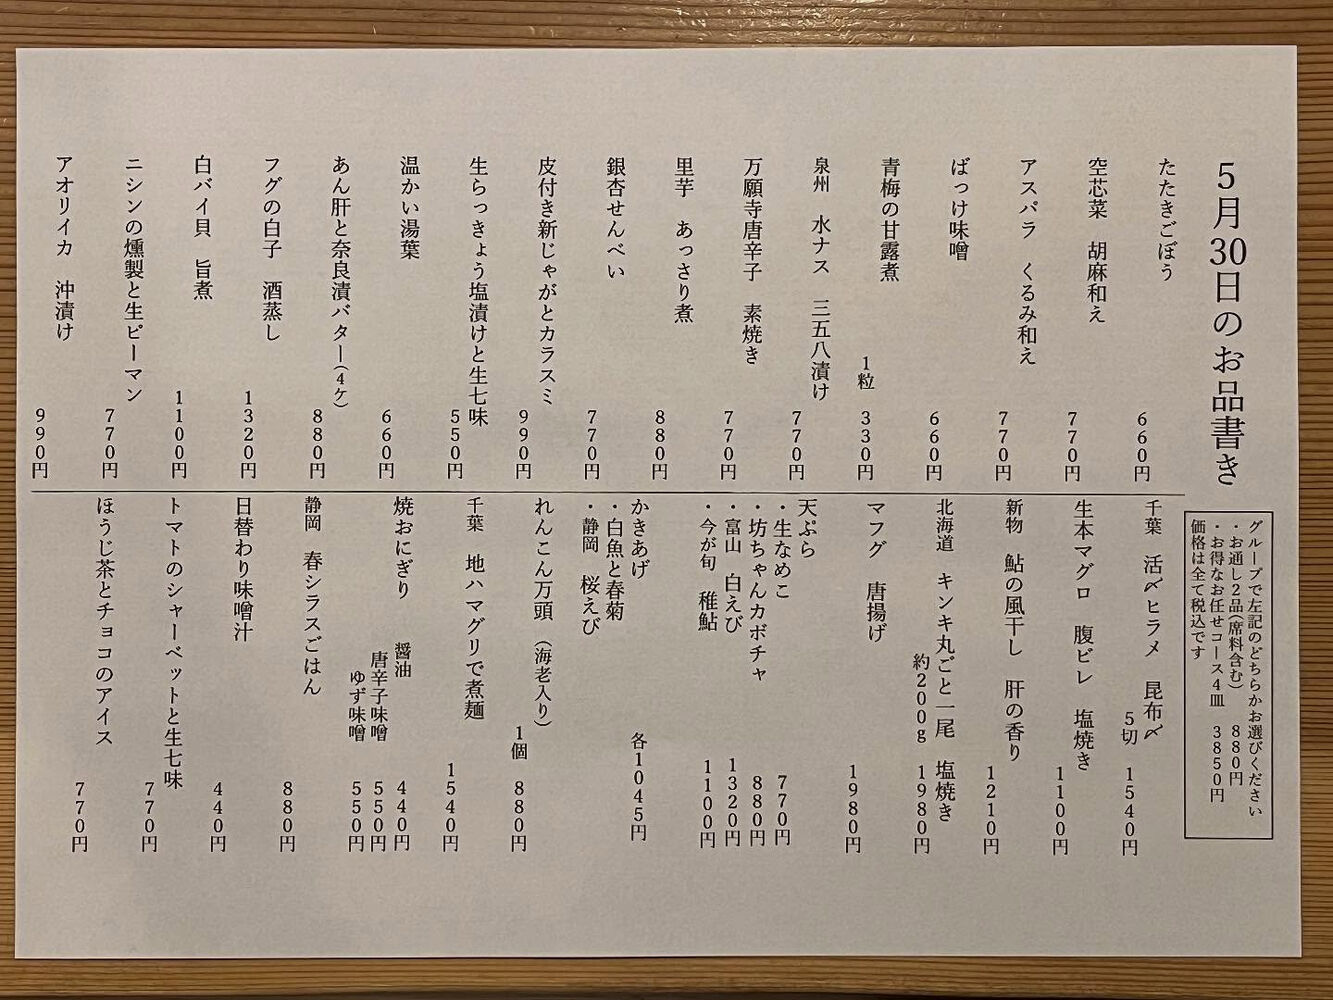 5月30日のお品書き
グループで左記のどちらかお選びください
・お通し2品(席料含む) 880円
・お得なお任せコース4皿 3850円
価格は全て税込です
たたきごぼう 660円
空芯菜 胡麻和え 770円
アスパラ くるみ和え 770円
ばっけ味噌 660円
青梅の甘露煮 1粒 330円
泉州 水ナス 三五八漬け 770円
万願寺唐辛子 素焼き 770円
里芋 あっさり煮 880円
銀杏せんべい 770円
皮付き新じゃがとカラスミ 990円
生らっきょう塩漬けと生七味 550円
温かい湯葉 660円
あん肝と奈良漬バター(4ケ) 880円
フグの白子 酒蒸し 1320円
白バイ貝 旨煮 1100円
ニシンの燻製と生ピーマン 770円
アオリイカ 沖漬け 990円
千葉 活〆ヒラメ 昆布〆 5切 1540円
生本マグロ 腹ビレ 塩焼き 1100円
新物 鮎の風干し 肝の香り 1210円
北海道 キンキ丸ごと一尾 塩焼き
約200g 1980円
マフグ 唐揚げ 1980円
天ぷら
・生なめこ 770円
・坊ちゃんカボチャ 880円
・富山 白えび 1320円
・今が旬 稚鮎 1100円
かきあげ 各1045円
・白魚と春菊
・静岡 桜えび
れんこん万頭 (海老入り) 1個 880円
千葉 地ハマグリで煮麺 1540円
焼おにぎり 醤油 440円
唐辛子味噌 550円
ゆず味噌 550円
静岡 春シラスごはん 880円
日替わり味噌汁 440円
トマトのシャーベットと生七味 770円
ほうじ茶とチョコのアイス 770円